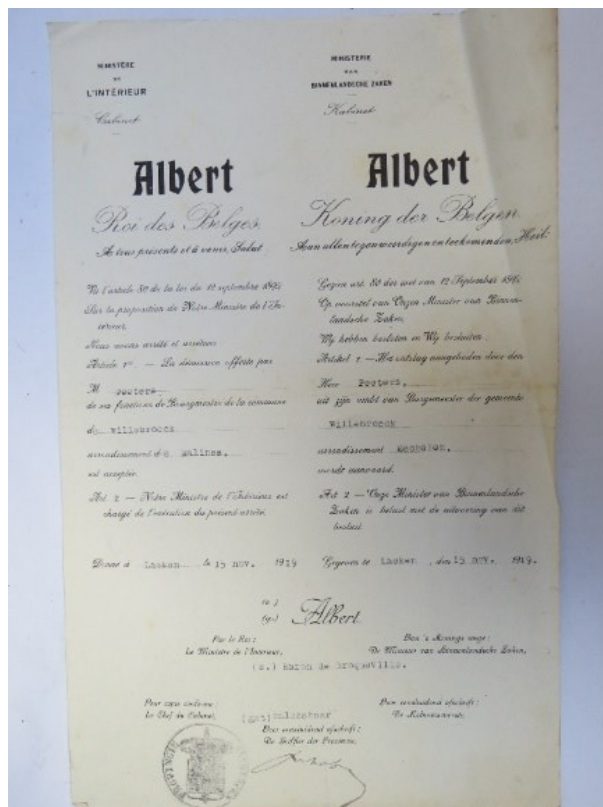 MINISTÈRE
DE
L'INTÉRIEUR
Cabinet
Albert
Roi des Belges.
A tous présents et à venir, Salut.
Vu l'article 80 de la loi du 12 septembre
Sur la proposition de Notre Ministre de l'In-
térieur,
Nous avons arrêté et arrêtons
Article 1er. — La démission offerte par
M.
de ses fonctions de Bourgmestre de la commune
de Willebroeck
arrondissement de Malines,
est acceptée.
Art. 2 — Notre Ministre de l'Intérieur est
chargé de l'exécution du présent arrêté.
Donné à Laeken, le 15 nov. 1919
MINISTERIE
VAN
BINNENLANDSCHE ZAKEN
Kabinet
Albert
Koning der Belgen.
Aan allen tegenwoordigen en toekomenden, Heil.
Gezien art. 80 der wet van 12 September
Op voorstel van Onzen Minister van Binnen-
landsche Zaken,
Wij hebben besloten en Wij besluiten:
Artikel 1. — Het ontslag aangeboden door den
Heer Peeters,
uit zijn ambt van Burgemeester der gemeente
Willebroeck
arrondissement Mechelen,
wordt aanvaard.
Art 2 — Onze Minister van Binnenlandsche
Zaken is belast met de uitvoering van dit
besluit.
Gegeven te Laeken, den 15 nov. 1919.
Albert
Par le Roi:
Le Ministre de l'Intérieur,
Van 's Konings wege:
De Minister van Binnenlandsche Zaken,
(s.) Baron de Broqueville.
Pour copie conforme:
Le Chef du Cabinet,
Voor eensluidend afschrift:
(get)
Voor eensluidend afschrift:
De Griffier der Provincie,